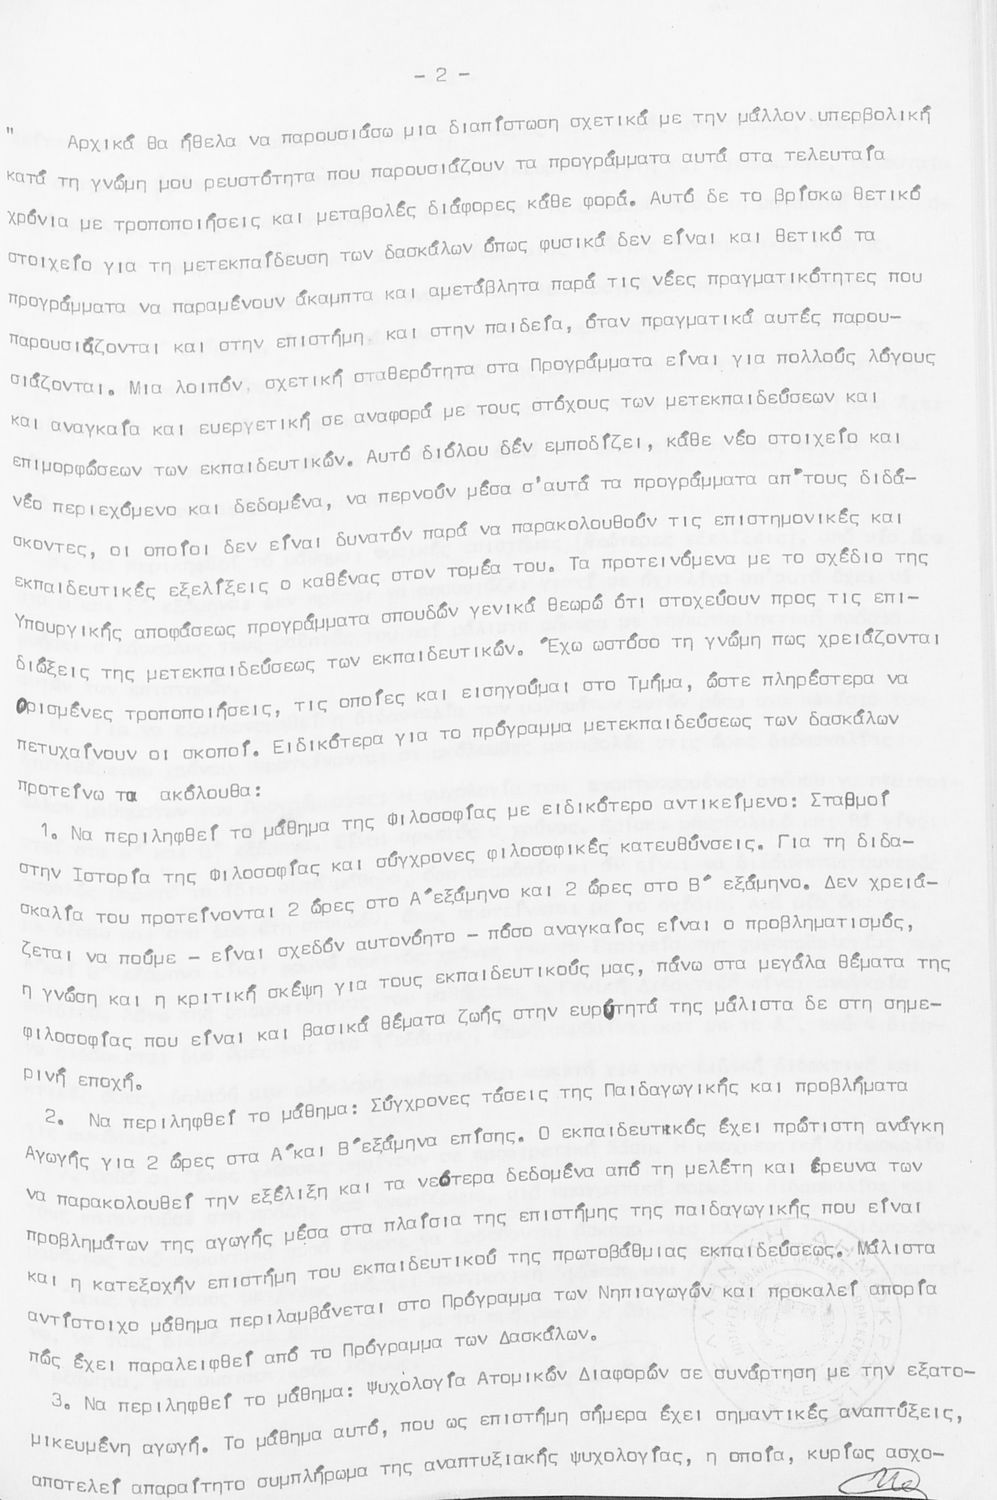 - 2 -
" Αρχικά θα ήθελα να παρουσιάσω μια διαπίστωση σχετικά με την μάλλον υπερβολική
κατά τη γνώμη μου ρευστότητα που παρουσιάζουν τα προγράμματα αυτά στα τελευταία
χρόνια με τροποποιήσεις και μεταβολές διάφορες κάθε φορά. Αυτό δε το βρίσκω θετικό
στοιχείο για τη μετεκπαίδευση των δασκάλων όπως φυσικά δεν είναι και θετικό τα
προγράμματα να παραμένουν άκαμπτα και αμετάβλητα παρά τις νέες πραγματικότητες που
παρουσιάζονται και στην επιστήμη και στην παιδεία, όταν πραγματικά αυτές παρου-
σιάζονται. Μια λοιπόν σχετική σταθερότητα στα Προγράμματα είναι για πολλούς λόγους
και αναγκαία και ευεργετική σε αναφορά με τους στόχους των μετεκπαιδεύσεων και
επιμορφώσεων των εκπαιδευτικών. Αυτό διόλου δέν εμποδίζει, κάθε νέο στοιχείο και
νέο περιεχόμενο και δεδομένα, να περνούν μέσα σ'αυτά τα προγράμματα απ'τους διδά-
σκοντες, οι οποίοι δεν είναι δυνατόν παρά να παρακολουθούν τις επιστημονικές και
εκπαιδευτικές εξελίξεις ο καθένας στον τομέα του. Τα προτεινόμενα με το σχέδιο της
Υπουργικής αποφάσεως προγράμματα σπουδών γενικά θεωρώ ότι στοχεύουν προς τις επι-
διώξεις της μετεκπαιδεύσεως των εκπαιδευτικών. Έχω ωστόσο τη γνώμη πως χρειάζονται
ορισμένες τροποποιήσεις, τις οποίες και εισηγούμαι στο Τμήμα, ώστε πληρέστερα να
πετυχαίνουν οι σκοποί. Ειδικότερα για το πρόγραμμα μετεκπαιδεύσεως των δασκάλων
προτείνω τα ακόλουθα:
1. Να περιληφθεί το μάθημα της Φιλοσοφίας με ειδικότερο αντικείμενο: Σταθμοί
στην Ιστορία της Φιλοσοφίας και σύγχρονες φιλοσοφικές κατευθύνσεις. Για τη διδα-
σκαλία του προτείνονται 2 ώρες στο Α΄εξάμηνο και 2 ώρες στο Β΄ εξάμηνο. Δεν χρειά-
ζεται να πούμε - είναι σχεδόν αυτονόητο - πόσο αναγκαίος είναι ο προβληματισμός,
η γνώση και η κριτική σκέψη για τους εκπαιδευτικούς μας, πάνω στα μεγάλα θέματα της
φιλοσοφίας που είναι και βασικά θέματα ζωής στην ευρύτητά της μάλιστα δε στη σημε-
ρινή εποχή.
2. Να περιληφθεί το μάθημα: Σύγχρονες τάσεις της Παιδαγωγικής και προβλήματα
Αγωγής για 2 ώρες στα Α΄και Β΄εξάμηνα επίσης. Ο εκπαιδευτικός έχει πρώτιστη ανάγκη
να παρακολουθεί την εξέλιξη και τα νεότερα δεδομένα από τη μελέτη και έρευνα των
προβλημάτων της αγωγής μέσα στα πλαίσια της επιστήμης της παιδαγωγικής που είναι
και η κατεξοχήν επιστήμη του εκπαιδευτικού της πρωτοβάθμιας εκπαιδεύσεως. Μάλιστα
αντίστοιχο μάθημα περιλαμβάνεται στο Πρόγραμμα των Νηπιαγωγών και προκαλεί απορία
πώς έχει παραλειφθεί από το Πρόγραμμα των Δασκάλων.
3. Να περιληφθεί το μάθημα: Ψυχολογία Ατομικών Διαφορών σε συνάρτηση με την εξατο-
μικευμένη αγωγή. Το μάθημα αυτό, που ως επιστήμη σήμερα έχει σημαντικές αναπτύξεις,
αποτελεί απαραίτητο συμπλήρωμα της αναπτυξιακής ψυχολογίας, η οποία, κυρίως ασχο-